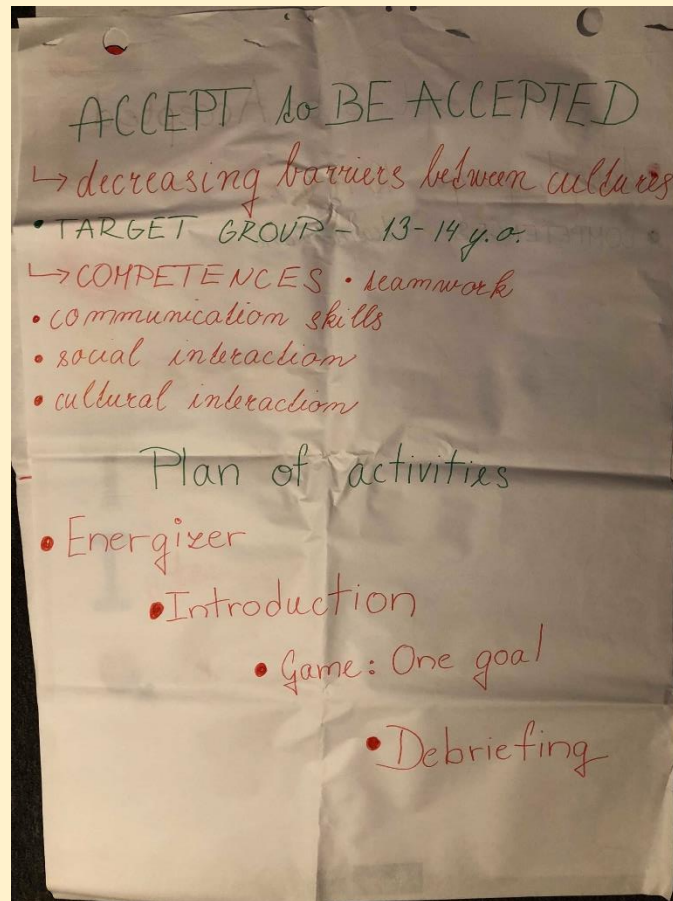 ACCEPT to BE ACCEPTED
↳ decreasing barriers between cultures
• TARGET GROUP - 13-14 y.o.
↳ COMPETENCES • teamwork
• communication skills
• social interaction
• cultural interaction
Plan of activities
• Energizer
• Introduction
• Game: One goal
• Debriefing